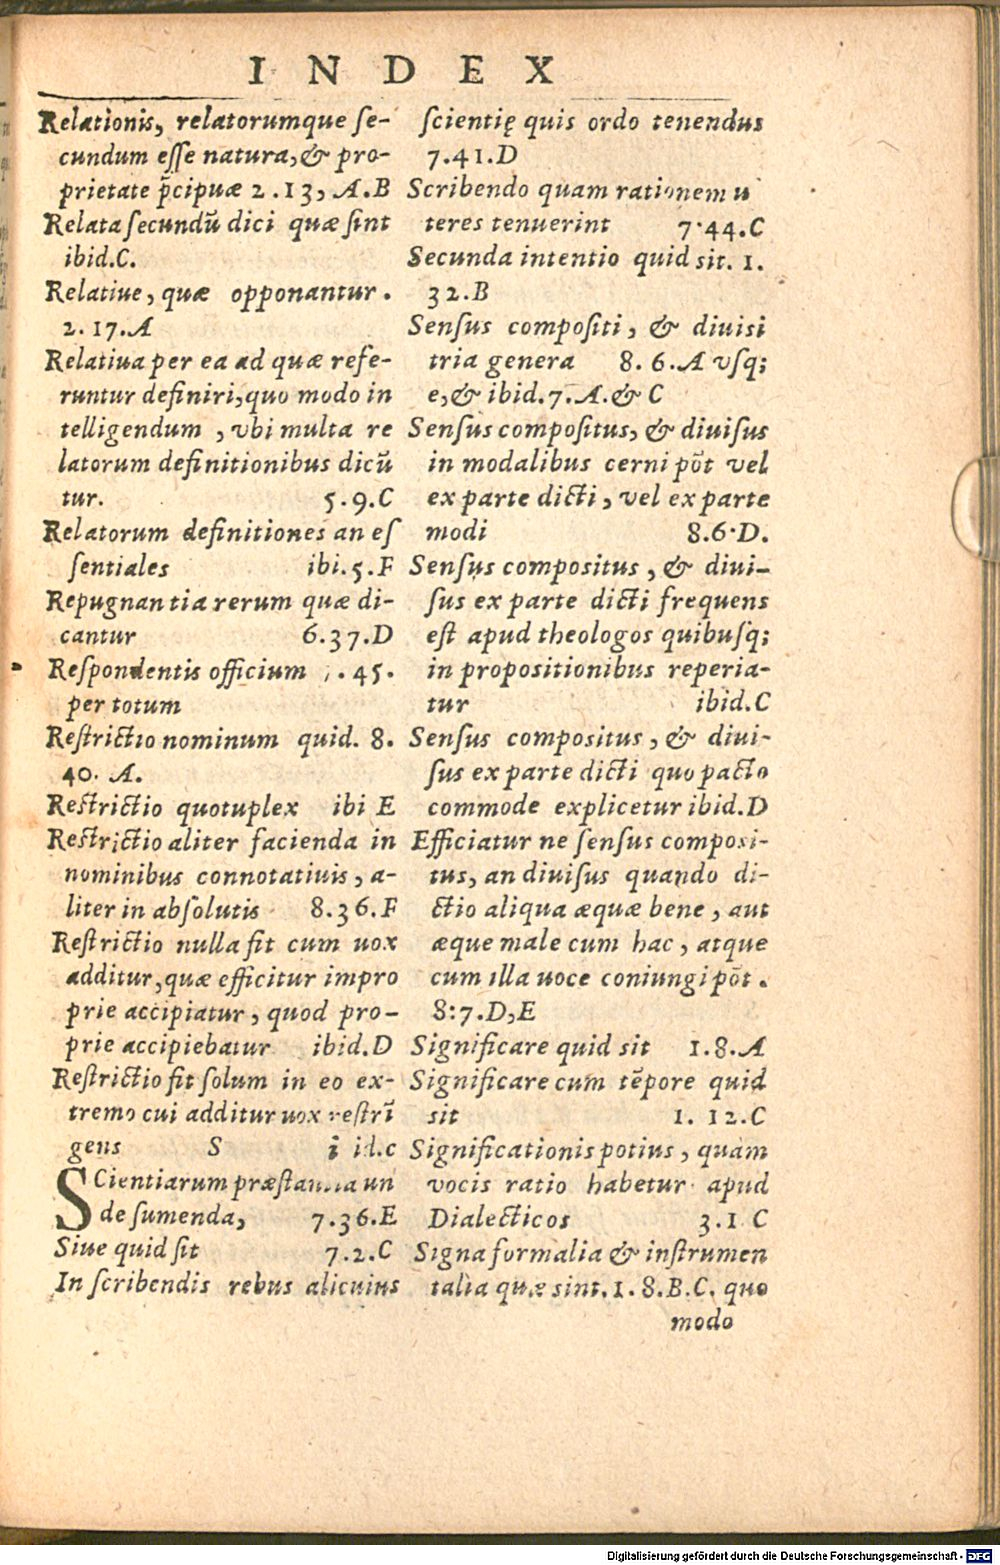 INDEX
Relationis, relatorumque se-
cundum esse natura, & pro-
prietate p̄cipuæ 2.13, A.B
Relata secundũ dici quæ sint
ibid.C.
Relatiue, quæ opponantur.
2.17.A
Relatiua per ea ad quæ refe-
runtur definiri, quo modo in
telligendum, vbi multa re
latorum definitionibus dicũ
tur. 5.9.C
Relatorum definitiones an es
sentiales ibi.5.F
Repugnantia rerum quæ di-
cantur 6.37.D
Respondentis officium .45.
per totum
Restrictio nominum quid. 8.
40. A.
Restrictio quotuplex ibi E
Restrictio aliter facienda in
nominibus connotatiuis, a-
liter in absolutis 8.36.F
Restrictio nulla fit cum uox
additur, quæ efficitur impro
prie accipiatur, quod pro-
prie accipiebatur ibid.D
Restrictio fit solum in eo ex-
tremo cui additur uox restrĩ
gens
S
Scientiarum præstantia un
de sumenda, 7.36.E
Siue quid sit 7.2.C
In scribendis rebus alicuius
scientię quis ordo tenendus
7.41.D
Scribendo quam rationem u
teres tenuerint 7.44.C
Secunda intentio quid sit. 1.
32.B
Sensus compositi, & diuisi
tria genera 8.6.A vsq;
e, & ibid.7.A.& C
Sensus compositus, & diuisus
in modalibus cerni põt vel
ex parte dicti, vel ex parte
modi 8.6.D.
Sensus compositus, & diui-
sus ex parte dicti frequens
est apud theologos quibusq;
in propositionibus reperia-
tur ibid.C
Sensus compositus, & diui-
sus ex parte dicti quo pacto
commode explicetur ibid.D
Efficiatur ne sensus composi-
tus, an diuisus quando di-
ctio aliqua æquæ bene, aut
æque male cum hac, atque
cum illa uoce coniungi põt.
8:7.D,E
Significare quid sit 1.8.A
Significare cum tẽpore quid
sit 1. 12.C
Significationis potius, quam
vocis ratio habetur apud
Dialecticos 3.1 C
Signa formalia & instrumen
talia quæ sint. 1.8.B.C. quo
modo
Digitalisierung gefördert durch die Deutsche Forschungsgemeinschaft - DFG